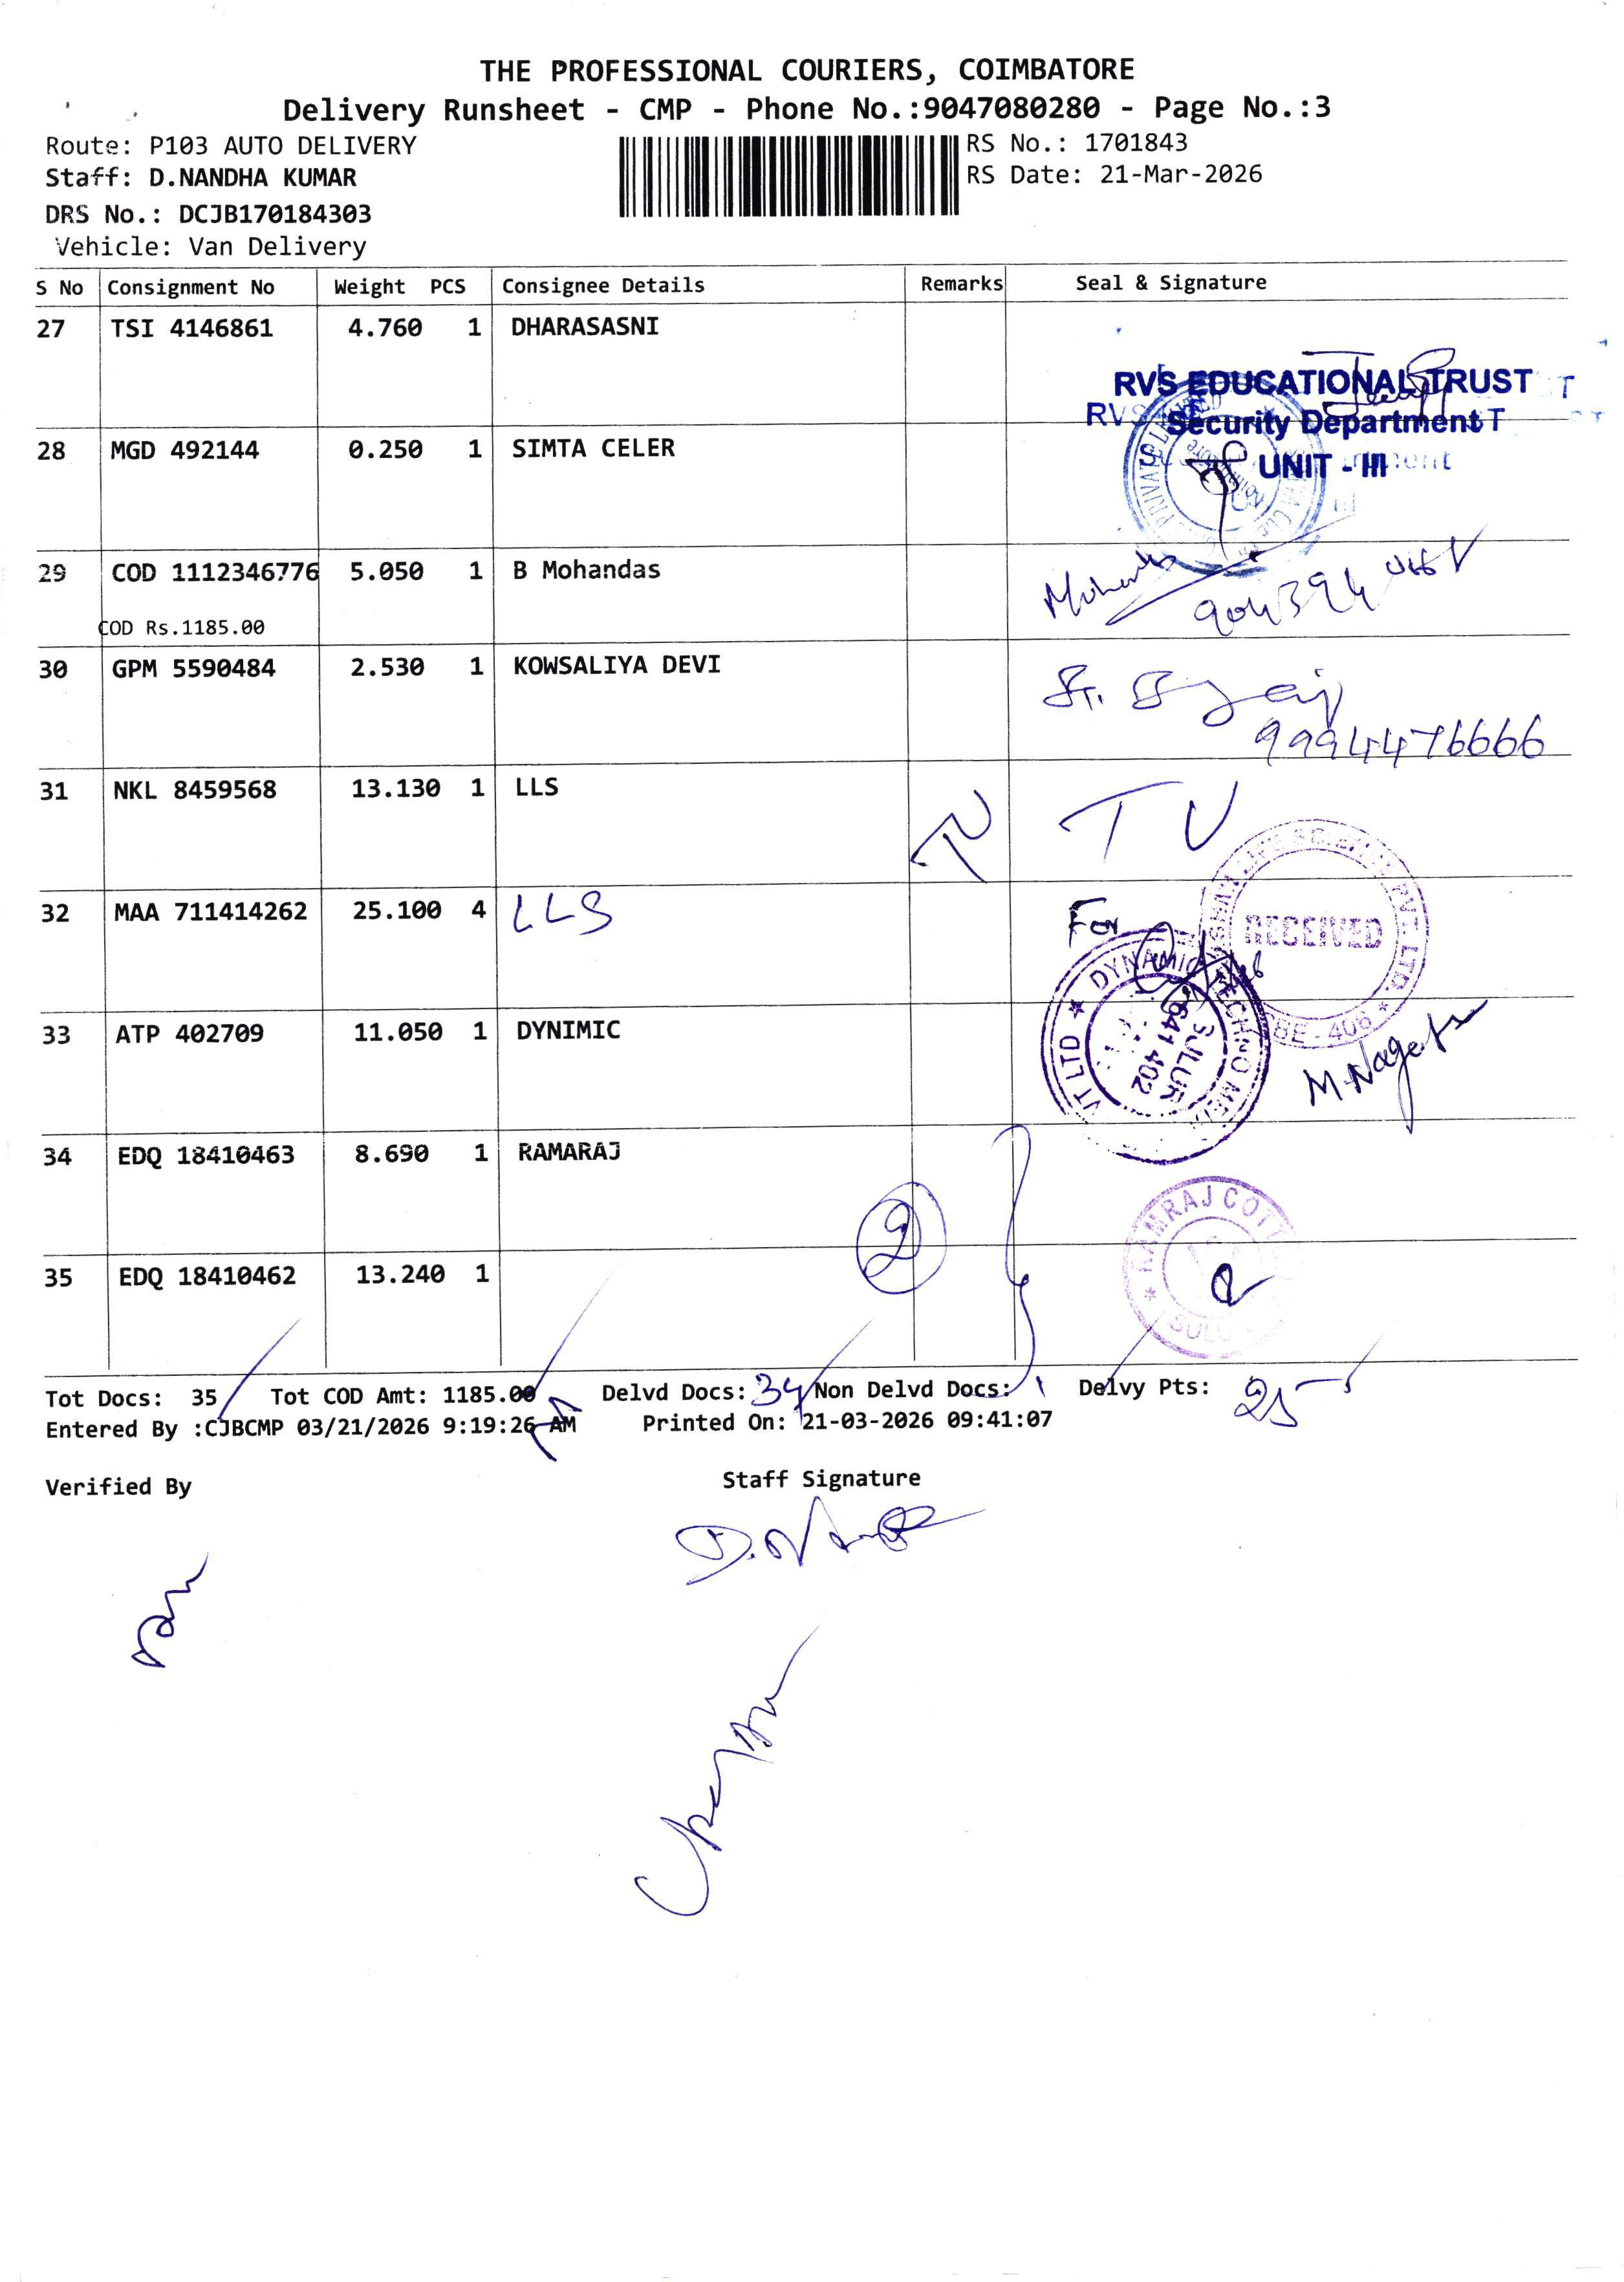 THE PROFESSIONAL COURIERS, COIMBATORE
Delivery Runsheet - CMP - Phone No.:9047080280 - Page No.:3
Route: P103 AUTO DELIVERY
RS No.: 1701843
Staff: D.NANDHA KUMAR
RS Date: 21-Mar-2026
DRS No.: DCJB170184303
Vehicle: Van Delivery
S No Consignment No Weight PCS Consignee Details Remarks Seal & Signature
27 TSI 4146861 4.760 1 DHARASASNI
RVS EDUCATIONAL TRUST
Security Department
UNIT - III
28 MGD 492144 0.250 1 SIMTA CELER
29 COD 1112346776 5.050 1 B Mohandas
COD Rs.1185.00
30 GPM 5590484 2.530 1 KOWSALIYA DEVI
9994476666
31 NKL 8459568 13.130 1 LLS TU TU
32 MAA 711414262 25.100 4 LLS For
RECEIVED
CBE - 406
33 ATP 402709 11.050 1 DYNIMIC
DYNAMIC TECHNO
SULUR
641 402
M.Nagendra
34 EDQ 18410463 8.690 1 RAMARAJ
2
RAMRAJ COTT
SULU
35 EDQ 18410462 13.240 1
Tot Docs: 35 Tot COD Amt: 1185.00 Delvd Docs: 34 Non Delvd Docs: 1 Delvy Pts: 25
Entered By :CJBCMP 03/21/2026 9:19:26 AM Printed On: 21-03-2026 09:41:07
Verified By Staff Signature